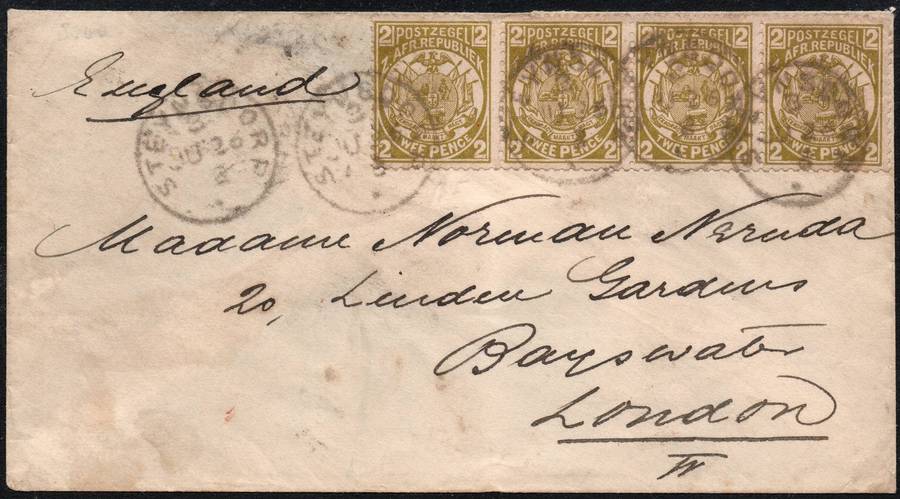 England
2 POSTZEGEL 2
Z. AFR. REPUBLIEK
2 TWEE PENCE 2
2 POSTZEGEL 2
Z. AFR. REPUBLIEK
2 TWEE PENCE 2
2 POSTZEGEL 2
Z. AFR. REPUBLIEK
2 TWEE PENCE 2
2 POSTZEGEL 2
Z. AFR. REPUBLIEK
2 TWEE PENCE 2
Madame Norman Neruda
20, Linden Gardens
Bayswater
London
W